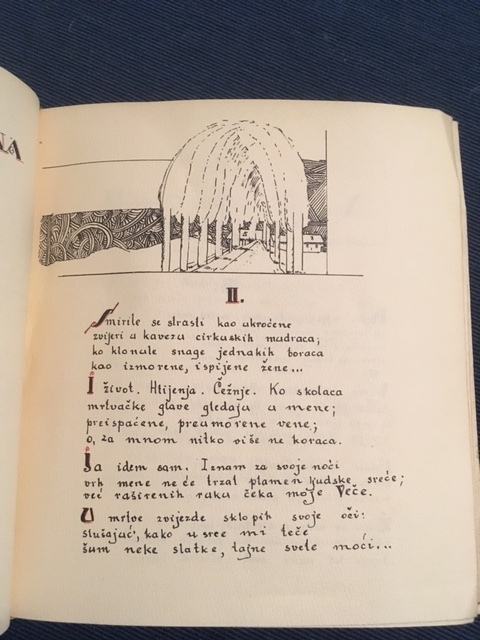 NA
II.
Smirile se strasti kao ukroćene
zvijeri u kavezu cirkuskih mudraca;
ko klonule snage jednakih boraca
kao izmorene, ispijene žene...
I život. Htijenja. Čežnje. Ko skolaca
mrtvačke glave gledaju u mene;
preispaćene, preumorene vene;
o, za mnom nitko više ne koraca.
Ja idem sam. I znam za svoje noći
vrh mene ne će trzat plamen ljudske sreće;
već raširenih ruku čeka moje Veče.
U mrtve zvijezde sklopih svoje oči:
slušajuć, kako u srce mi teče
šum neke slatke, tajne svete moći...